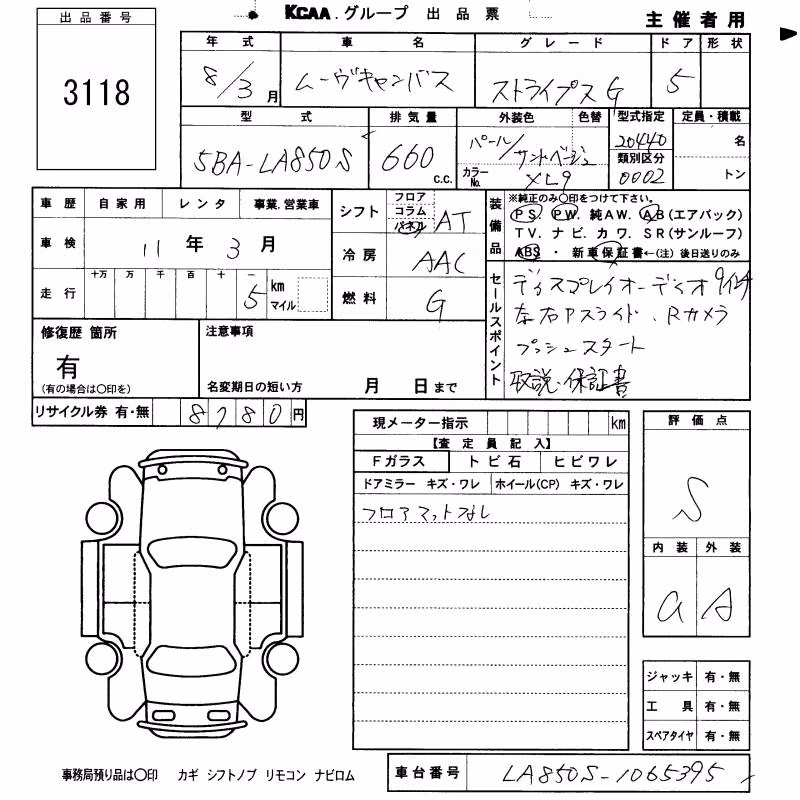 出品番号
3118
KCAA グループ 出品票
主催者用
年式 車名 グレード ドア 形状
8/3月 ムーヴキャンバス ストライプスG 5
型式 排気量 外装色 色替 型式指定 定員・積載
5BA-LA850S 660 c.c. パール/サンドベージュ 20440 名
カラーNo. XL9 類別区分 0002 トン
車歴 自家用 レンタ 事業.営業車
車検 11年3月
走行 十万 万 千 百 十 一
5 km マイル
シフト フロア コラム パネル AT
冷房 AAC
燃料 G
装備品
※純正のみ○印をつけて下さい。
PS. PW. 純AW. AB(エアバック)
TV. ナビ. カワ. SR(サンルーフ)
ABS・新車保証書←(注)後日送りのみ
セールスポイント
ディスプレイオーディオ9インチ
左右Pスライド、Rカメラ
プッシュスタート
取説・保証書
修復歴 箇所
有
(有の場合は○印を)
注意事項
名変期日の短い方 月 日まで
リサイクル券 有・無 8780円
現メーター指示 km
【査定員記入】
Fガラス トビ石 ヒビワレ
ドアミラー キズ・ワレ ホイール(CP) キズ・ワレ
フロアマットなし
評価点
S
内装 外装
a A
ジャッキ 有・無
工具 有・無
スペアタイヤ 有・無
事務局預り品は○印 カギ シフトノブ リモコン ナビロム
車台番号 LA850S-1065395